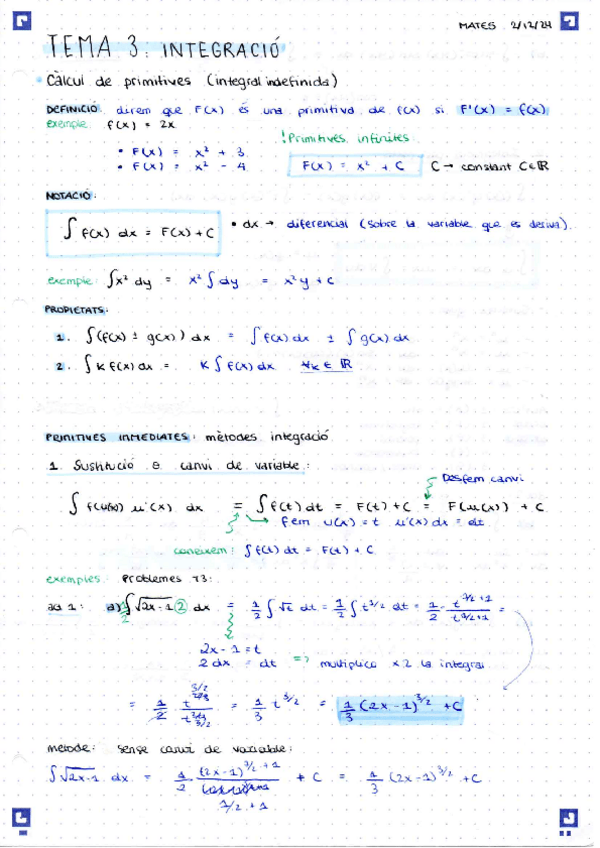 MATES 2/12/24
TEMA 3: INTEGRACIÓ
Càlcul de primitives (integral indefinida)
DEFINICIÓ: direm que F(x) és una primitiva de f(x) si F'(x) = f(x)
exemple: f(x) = 2x
! Primitives infinites
• F(x) = x² + 3
• F(x) = x² - 4
F(x) = x² + C C → constant C∈ℝ
NOTACIÓ:
∫ f(x) dx = F(x) + C • dx → diferencial (sobre la variable que es deriva).
exemple: ∫x² dy = x² ∫ dy = x²y + C
PROPIETATS:
1. ∫(f(x) ± g(x)) dx = ∫ f(x) dx ± ∫ g(x) dx
2. ∫ K f(x) dx = K ∫ f(x) dx ∀k ∈ ℝ
PRIMITIVES INMEDIATES: mètodes integració
1. Sustitució o canvi de variable:
Desfem canvi
∫ f(u(x)) u'(x) dx = ∫ f(t) dt = F(t) + C = F(u(x)) + C
Fem u(x) = t u'(x) dx = dt
coneixem: ∫ f(t) dt = F(t) + C
exemples: Problemes T3:
act 1: a) 1/2 ∫ √2x-1 2 dx = 1/2 ∫ √t dt = 1/2 ∫ t^1/2 dt = 1/2 · t^1/2+1 / 1/2+1 =
2x - 1 = t
2 dx = dt => multiplico x2 la integral
= 1/2 t^3/2 / 3/2 = 1/3 t^3/2 = 1/3 (2x-1)^3/2 + C
mètode: sense canvi de variable:
∫ √2x-1 dx = 1/2 (2x-1)^1/2+1 / 1/2+1 + C = 1/3 (2x-1)^3/2 + C